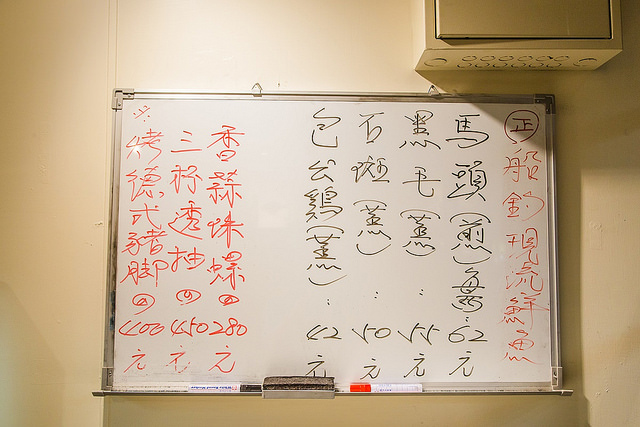 正船釣現流鮮魚
馬頭(煎)每:62元
黑毛(蒸):55元
石斑(蒸):50元
包公鷄(蒸):42元
香蒜珠螺280元
三杯透抽450元
※烤德式豬腳400元